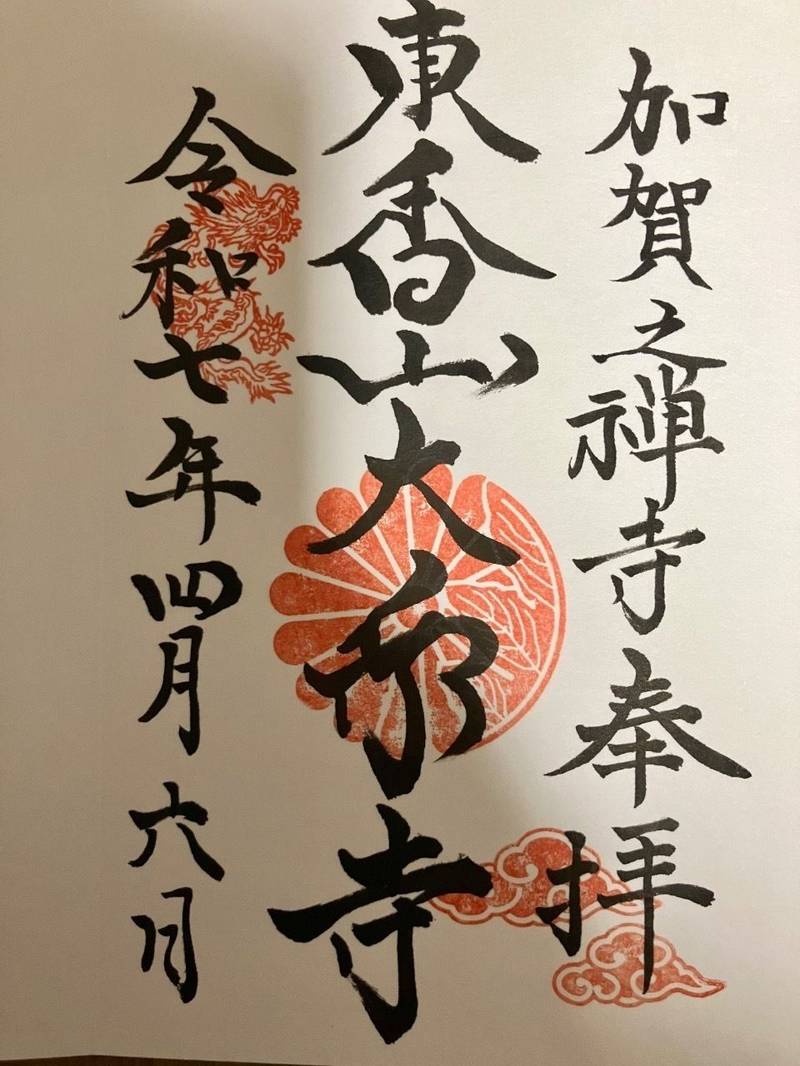 加賀之禅寺奉拝
東香山大乘寺
令和七年四月六日